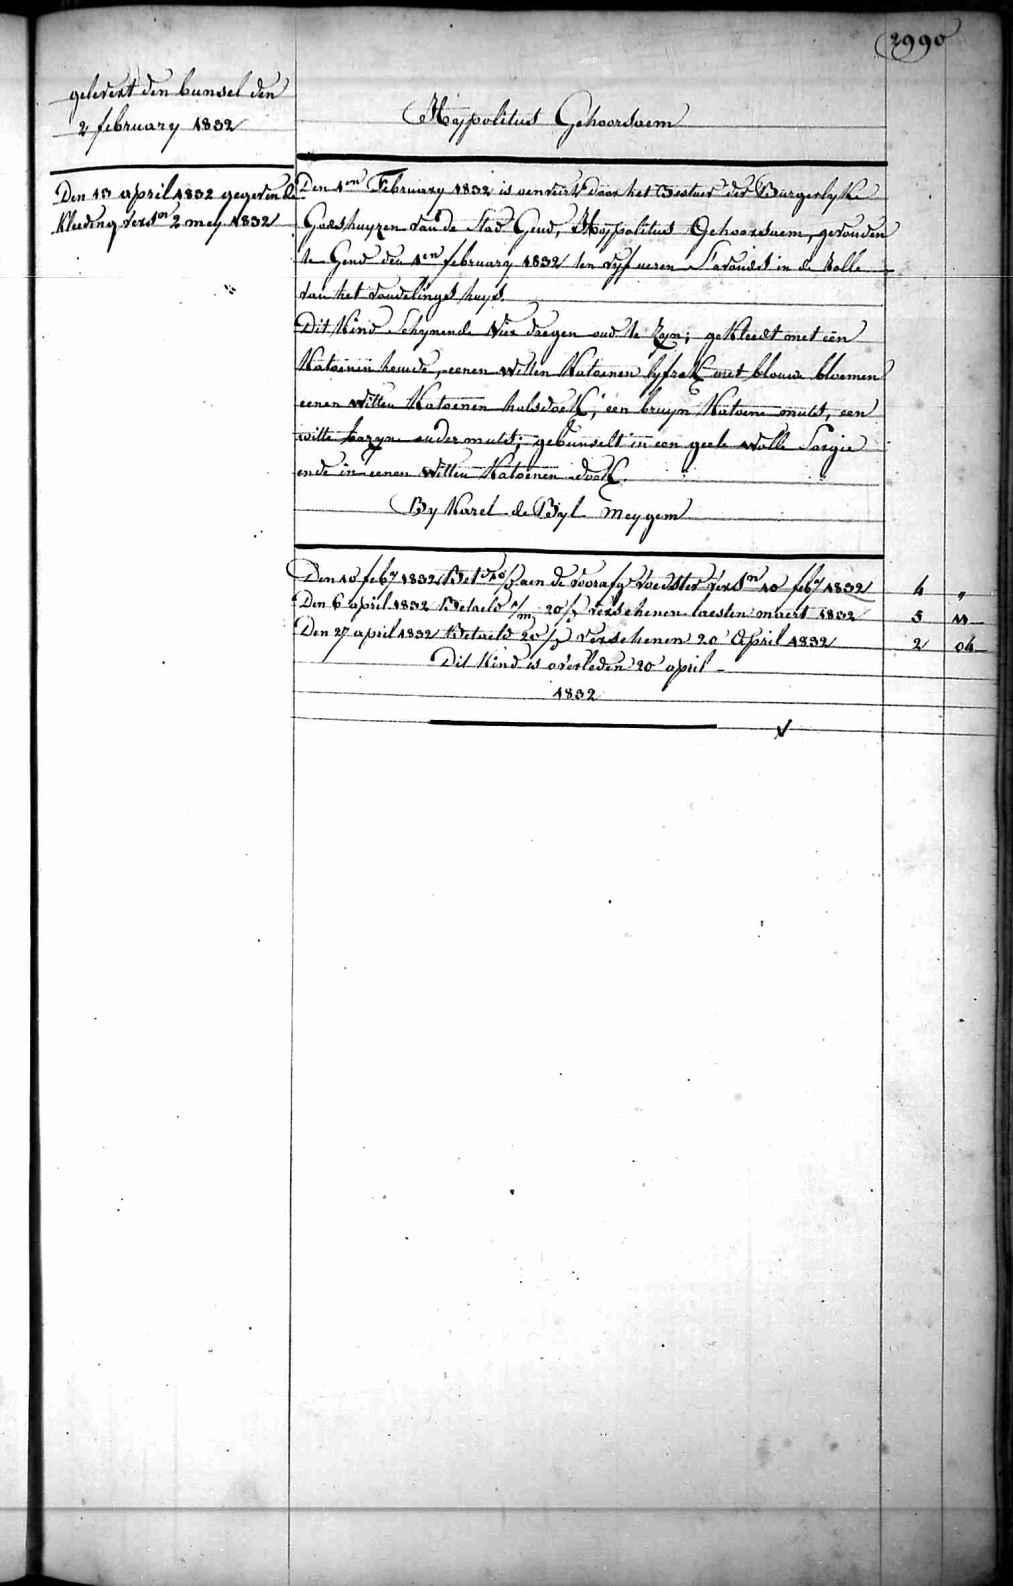 2990
gelevert den bunsel den
2 february 1832
Hÿppolitus Gehoorsaem
Den 13 april 1832 gegeven de
Kleeding versn 2 mey 1832
Den 1en February 1832 is aenveirt door het Bestuer der Burgerlyke
Godshuyzen van de Stad Gend, Hÿppolitus Gehoorsaem, gevonden
te Gend den 1en february 1832 ten vyf ueren S'avonds in de Rolle
van het vondelingshuys.
Dit Kind Schynende vier daegen oud te Zyn; gekleedt met een
Katoenen hemde, eenen witten Katoenen lyfrok met blouwe bloemen
eenen witten Katoenen halsdoek; een bruyn Katoene muts, een
witte bazyne onder muts; gebunselt in een geele wolle Sargie
ende in eenen witten Katoenen doek.
By Karel de Byl Meygem
Den 10 feby 1832 Betd aen de voedster versn 10 feby 1832 4 "
Den 6 april 1832 Betaeld 20 verschenen laesten maert 1832 5 11
Den 27 april 1832 Betaeld 20 verschenen 20 April 1832 2 04
Dit Kind is overleden 20 april
1832